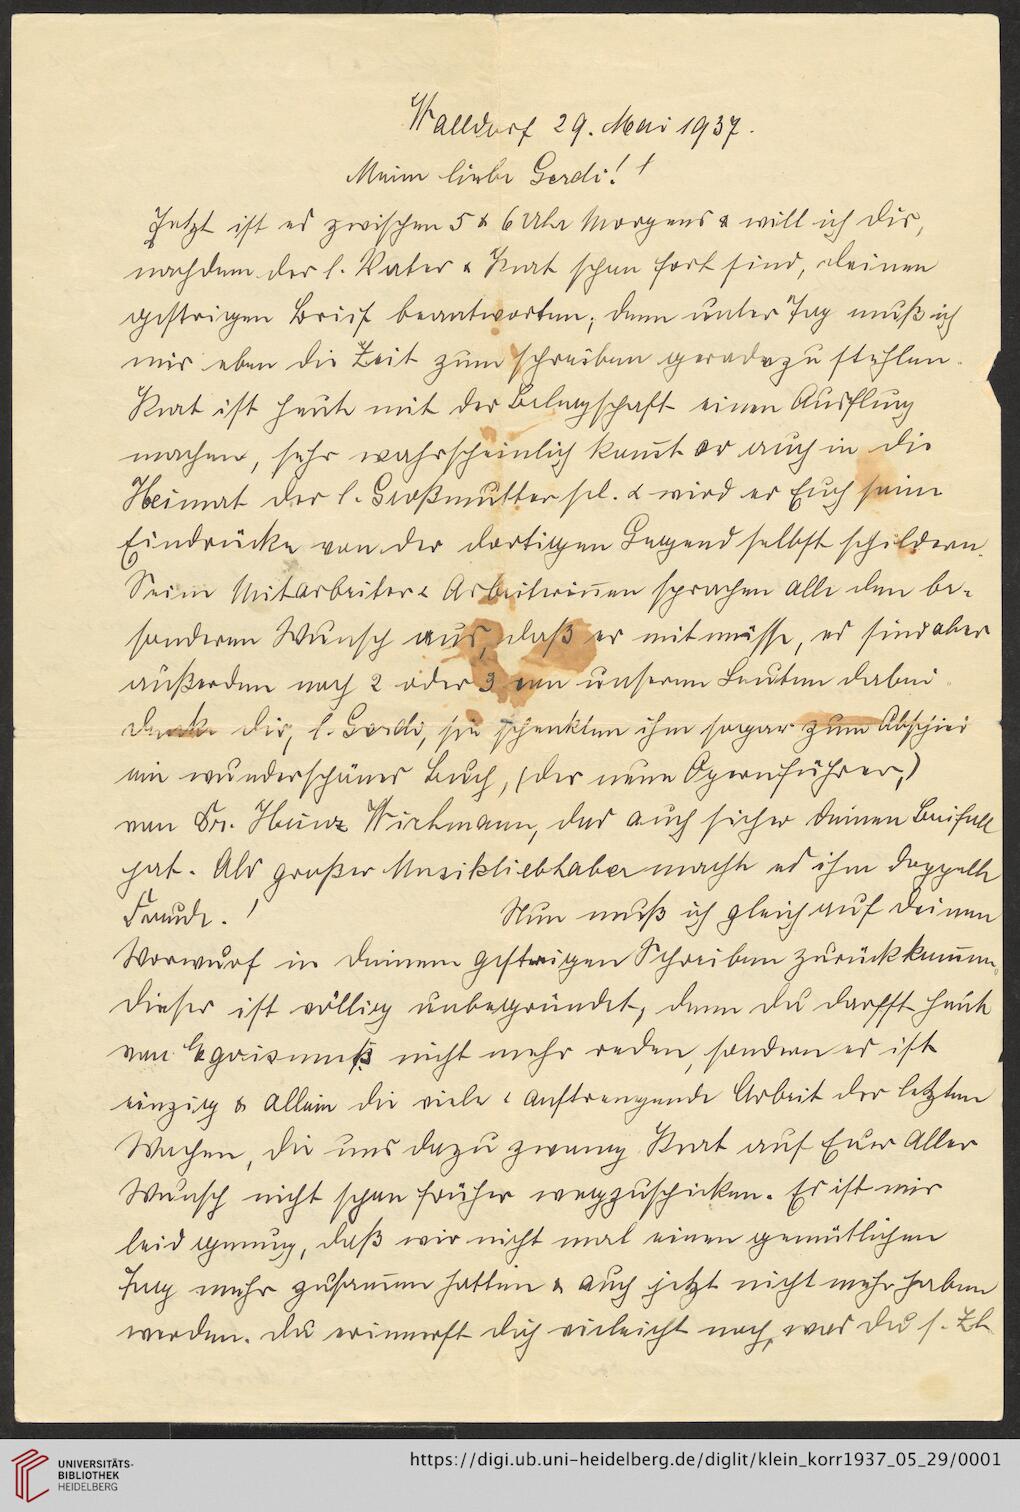 Walldorf 29. Mai 1937.
Meine liebe Gerdi!!
Jetzt ist es zwischen 5 & 6 Uhr Morgens & will ich Dir,
nachdem der l. Vater & Kurt schon fort sind, deinen
gestrigen Brief beantworten; denn unter Tag muß ich
mir eben die Zeit zum schreiben geradezu stehlen.
Kurt ist heute mit der Belegschaft einen Ausflug
machen, sehr wahrscheinlich komt er auch in die
Heimat der l. Großmutter sel. & wird er Euch seine
Eindrücke von der dortigen Gegend selbst schildern.
Seine Mitarbeiter & Arbeiterinen sprachen alle den be-
sonderen Wunsch aus, daß er mit müsse, es sind aber
außerdem noch 2 oder 3 von unseren Leuten dabei.
denke Dir, l. Gerdi, sie schenkten ihm sogar zum Abschied
ein wunderschönes Buch, (der neue Opernführer,)
von Dr. Heinz Wichmann, das auch sicher deinen Beifall
hat. Als großer Musikliebhaber machte es ihm doppelte
Freude.! Nun muß ich gleich auf deinen
Vorwurf in deinem gestrigen Schreiben zurückkommen,
dieser ist völlig unbegründet, denn du darfst heute
von Egoismuß nicht mehr reden, sondern es ist
einzig & allein die viele & anstrengende Arbeit der letzten
Wochen, die uns dazu zwang Kurt auf Euer Aller
Wunsch nicht schon früher wegzuschicken. Es ist mir
leid genug, daß wir nicht mal einen gemütlichen
Tag mehr zusamen hatten & auch jetzt nicht mehr haben
werden. Du erinnerst dich vieleicht noch, was du s. Zt.
UNIVERSITÄTS-
BIBLIOTHEK
HEIDELBERG
https://digi.ub.uni-heidelberg.de/diglit/klein_korr1937_05_29/0001